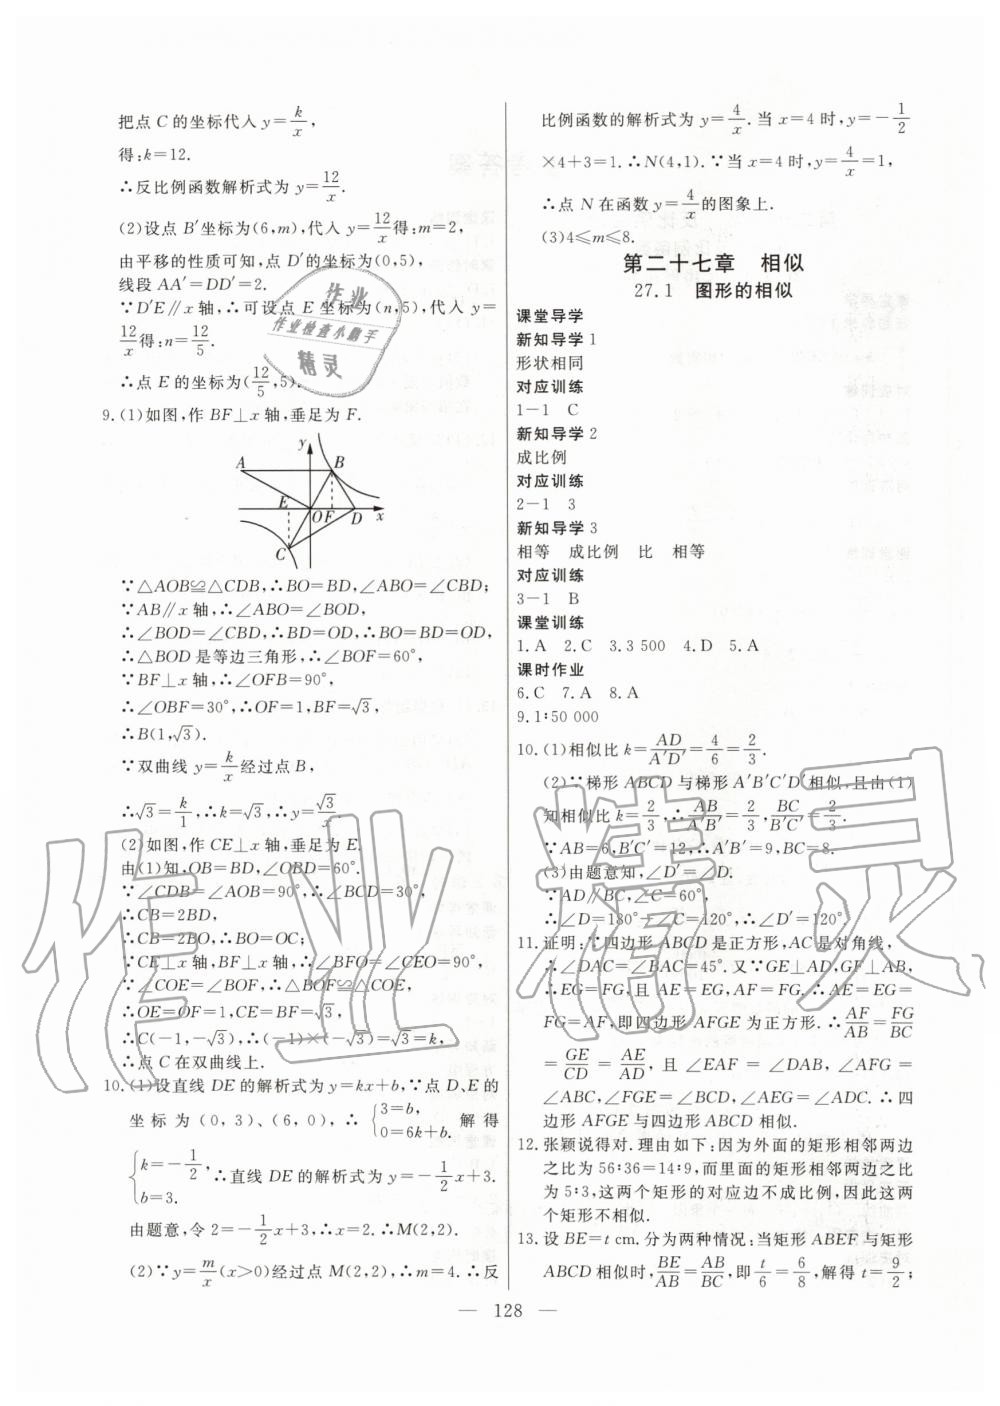 把点 C 的坐标代入 y=k/x,
得:k=12.
∴反比例函数解析式为 y=12/x.
(2)设点 B′坐标为(6,m),代入 y=12/x得:m=2,
由平移的性质可知,点 D′的坐标为(0,5),
线段 AA′=DD′=2.
∵D′E∥x 轴,∴可设点 E 坐标为(n,5),代入 y=
12/x得:n=12/5.
∴点 E 的坐标为(12/5,5).
9.(1)如图,作 BF⊥x 轴,垂足为 F.
y
A B
E
O F D x
C
∵△AOB≌△CDB,∴BO=BD,∠ABO=∠CBD;
∵AB∥x 轴,∴∠ABO=∠BOD,
∴∠BOD=∠CBD,∴BD=OD,∴BO=BD=OD,
∴△BOD 是等边三角形,∴∠BOF=60°,
∵BF⊥x 轴,∴∠OFB=90°,
∴∠OBF=30°,∴OF=1,BF=√3,
∴B(1,√3).
∵双曲线 y=k/x经过点 B,
∴√3=k/1,∴k=√3,∴y=√3/x.
(2)如图,作 CE⊥x 轴,垂足为 E.
由(1)知,OB=BD,∠OBD=60°.
∵∠CDB=∠AOB=90°,∴∠BCD=30°,
∴CB=2BD,
∴CB=2BO,∴BO=OC;
∵CE⊥x 轴,BF⊥x 轴,∴∠BFO=∠CEO=90°,
∵∠COE=∠BOF,∴△BOF≌△COE,
∴OE=OF=1,CE=BF=√3,
∴C(-1,-√3),∴(-1)×(-√3)=√3=k,
∴点 C 在双曲线上.
10.(1)设直线 DE 的解析式为 y=kx+b,∵点 D、E 的
坐标为(0,3)、(6,0),∴{3=b, 0=6k+b. 解得
{k=-1/2, b=3. ∴直线 DE 的解析式为 y=-1/2x+3.
由题意,令 2=-1/2x+3,∴x=2.∴M(2,2).
(2)∵y=m/x(x>0)经过点 M(2,2),∴m=4.∴反
比例函数的解析式为 y=4/x.当 x=4 时,y=-1/2
×4+3=1.∴N(4,1).∵当 x=4 时,y=4/x=1,
∴点 N 在函数 y=4/x的图象上.
(3)4≤m≤8.
第二十七章 相似
27.1 图形的相似
课堂导学
新知导学 1
形状相同
对应训练
1-1 C
新知导学 2
成比例
对应训练
2-1 3
新知导学 3
相等 成比例 比 相等
对应训练
3-1 B
课堂训练
1.A 2.C 3.3 500 4.D 5.A
课时作业
6.C 7.A 8.A
9.1∶50 000
10.(1)相似比 k=AD/A′D′=4/6=2/3.
(2)∵梯形 ABCD 与梯形 A′B′C′D′相似,且由(1)
知相似比 k=2/3,∴AB/A′B′=2/3,BC/B′C′=2/3.
∵AB=6,B′C′=12,∴A′B′=9,BC=8.
(3)由题意知,∠D′=∠D.
∵AD∥BC,∠C=60°,
∴∠D=180°-∠C=120°,∴∠D′=120°.
11.证明:∵四边形 ABCD 是正方形,AC 是对角线,
∴∠DAC=∠BAC=45°.又∵GE⊥AD,GF⊥AB,
∴EG=FG,且 AE=EG,AF=FG.∴AE=EG=
FG=AF,即四边形 AFGE 为正方形.∴AF/AB=FG/BC
=GE/CD=AE/AD,且∠EAF=∠DAB,∠AFG=
∠ABC,∠FGE=∠BCD,∠AEG=∠ADC.∴四
边形 AFGE 与四边形 ABCD 相似.
12.张颖说得对.理由如下:因为外面的矩形相邻两边
之比为 56∶36=14∶9,而里面的矩形相邻两边之比
为 5∶3,这两个矩形的对应边不成比例,因此这两
个矩形不相似.
13.设 BE=t cm.分为两种情况:当矩形 ABEF 与矩形
ABCD 相似时,BE/AB=AB/BC,即t/6=6/8,解得 t=9/2;
— 128 —
作业
作业检查小助手
精灵
作业精灵